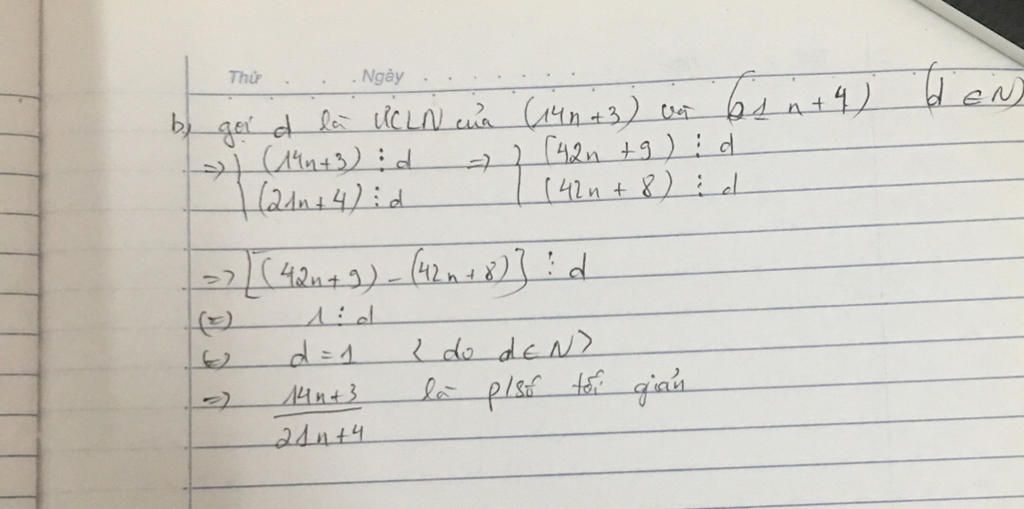 Thứ . . . . Ngày . . . . . . .
b) gọi d là ƯCLN của (14n+3) và (21n+4) (d ∈ N)
=> { (14n+3) ⋮ d => { (42n +9) ⋮ d
(21n+4) ⋮ d (42n + 8) ⋮ d
=> [(42n+9) - (42n+8)] ⋮ d
(=) 1 ⋮ d
(=) d = 1 < do d ∈ N >
=> 14n+3 là p/số tối giản
21n+4